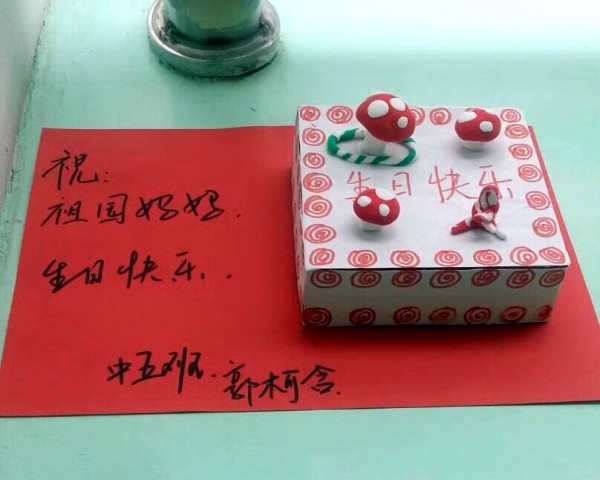 祝:
祖国妈妈.
生日快乐..
中五班.郭柯含.
生日快乐